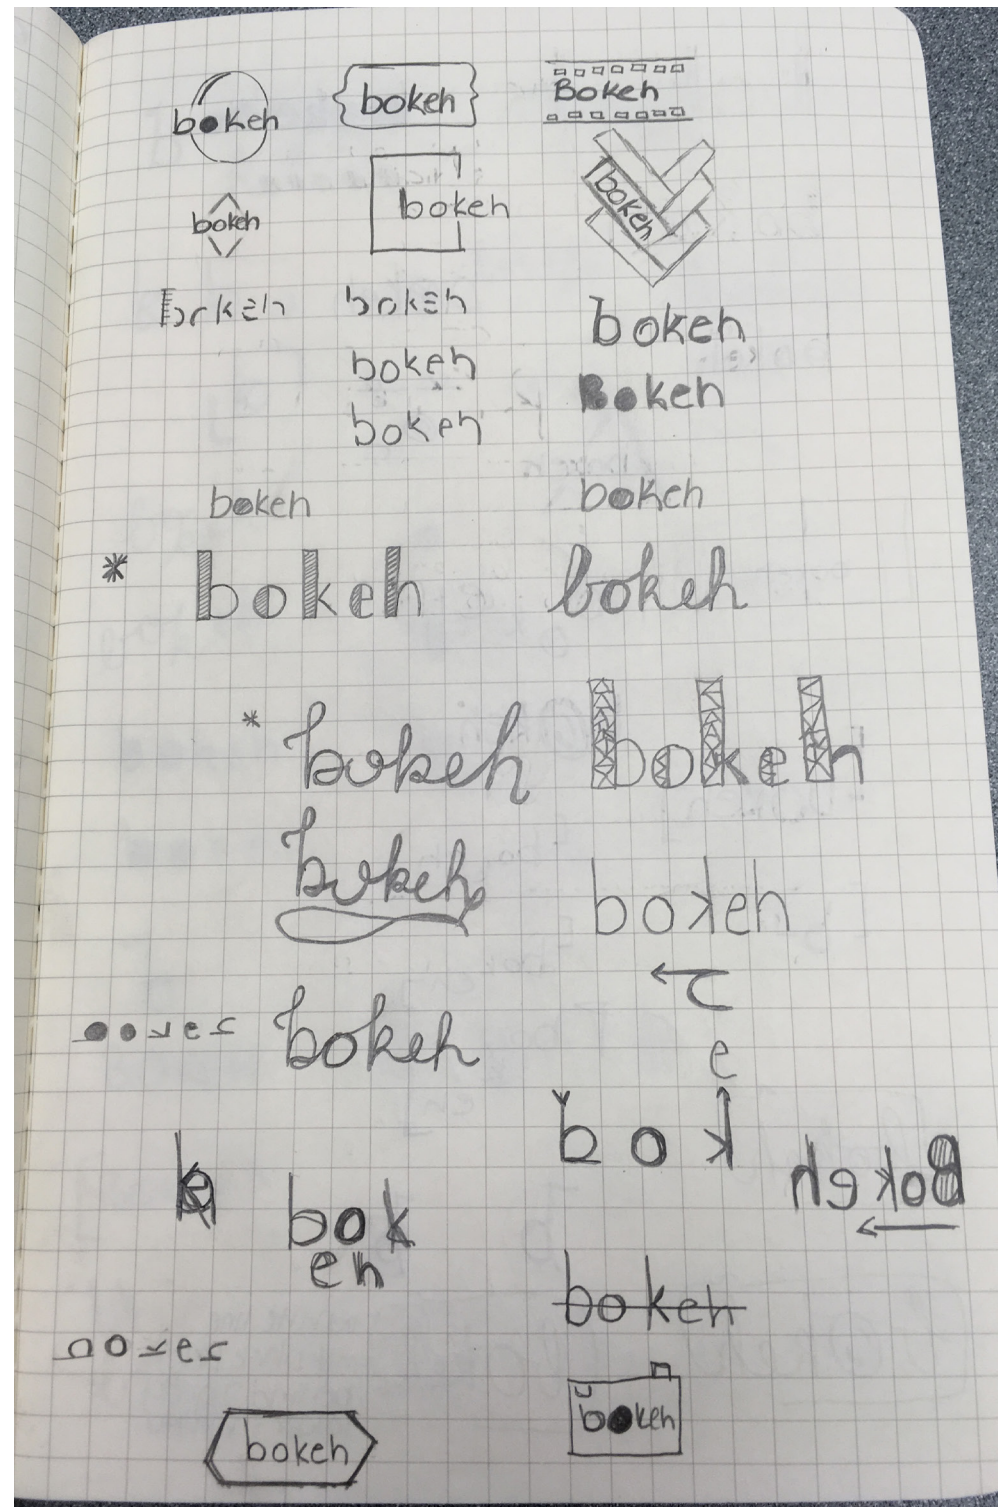 bokeh
bokeh
Bokeh
bokeh
bokeh
bokeh
bokeh
bokeh
bokeh
bokeh
Bokeh
bokeh
bokeh
bokeh
* bokeh
bokeh
* bokeh
bokeh
bokeh
bokeh
bokeh
e
bok
Bokeh
bok
eh
bokeh
bokeh
bokeh